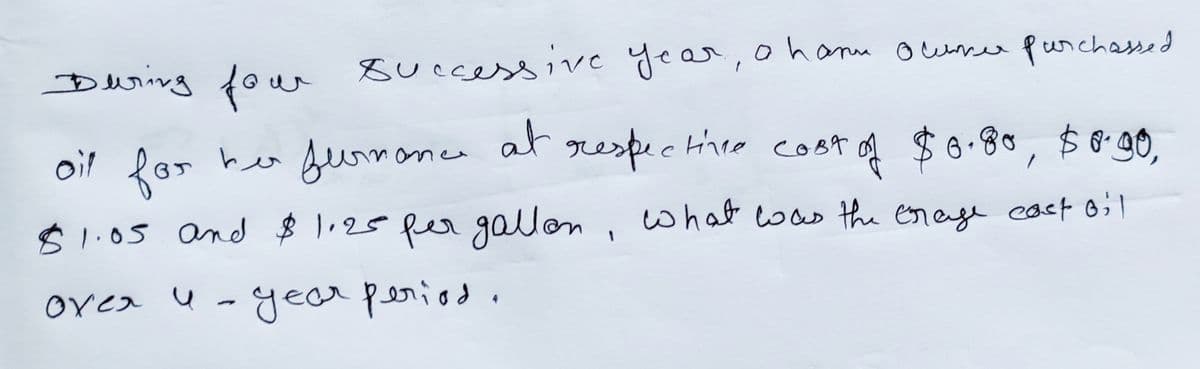 During four successive year, a home owner purchassed
oil for her furnance at respective cost of $ 0.80, $ 0.90,
$ 1.05 and $ 1.25 per gallon, what was the cost oil
over 4 - year period.